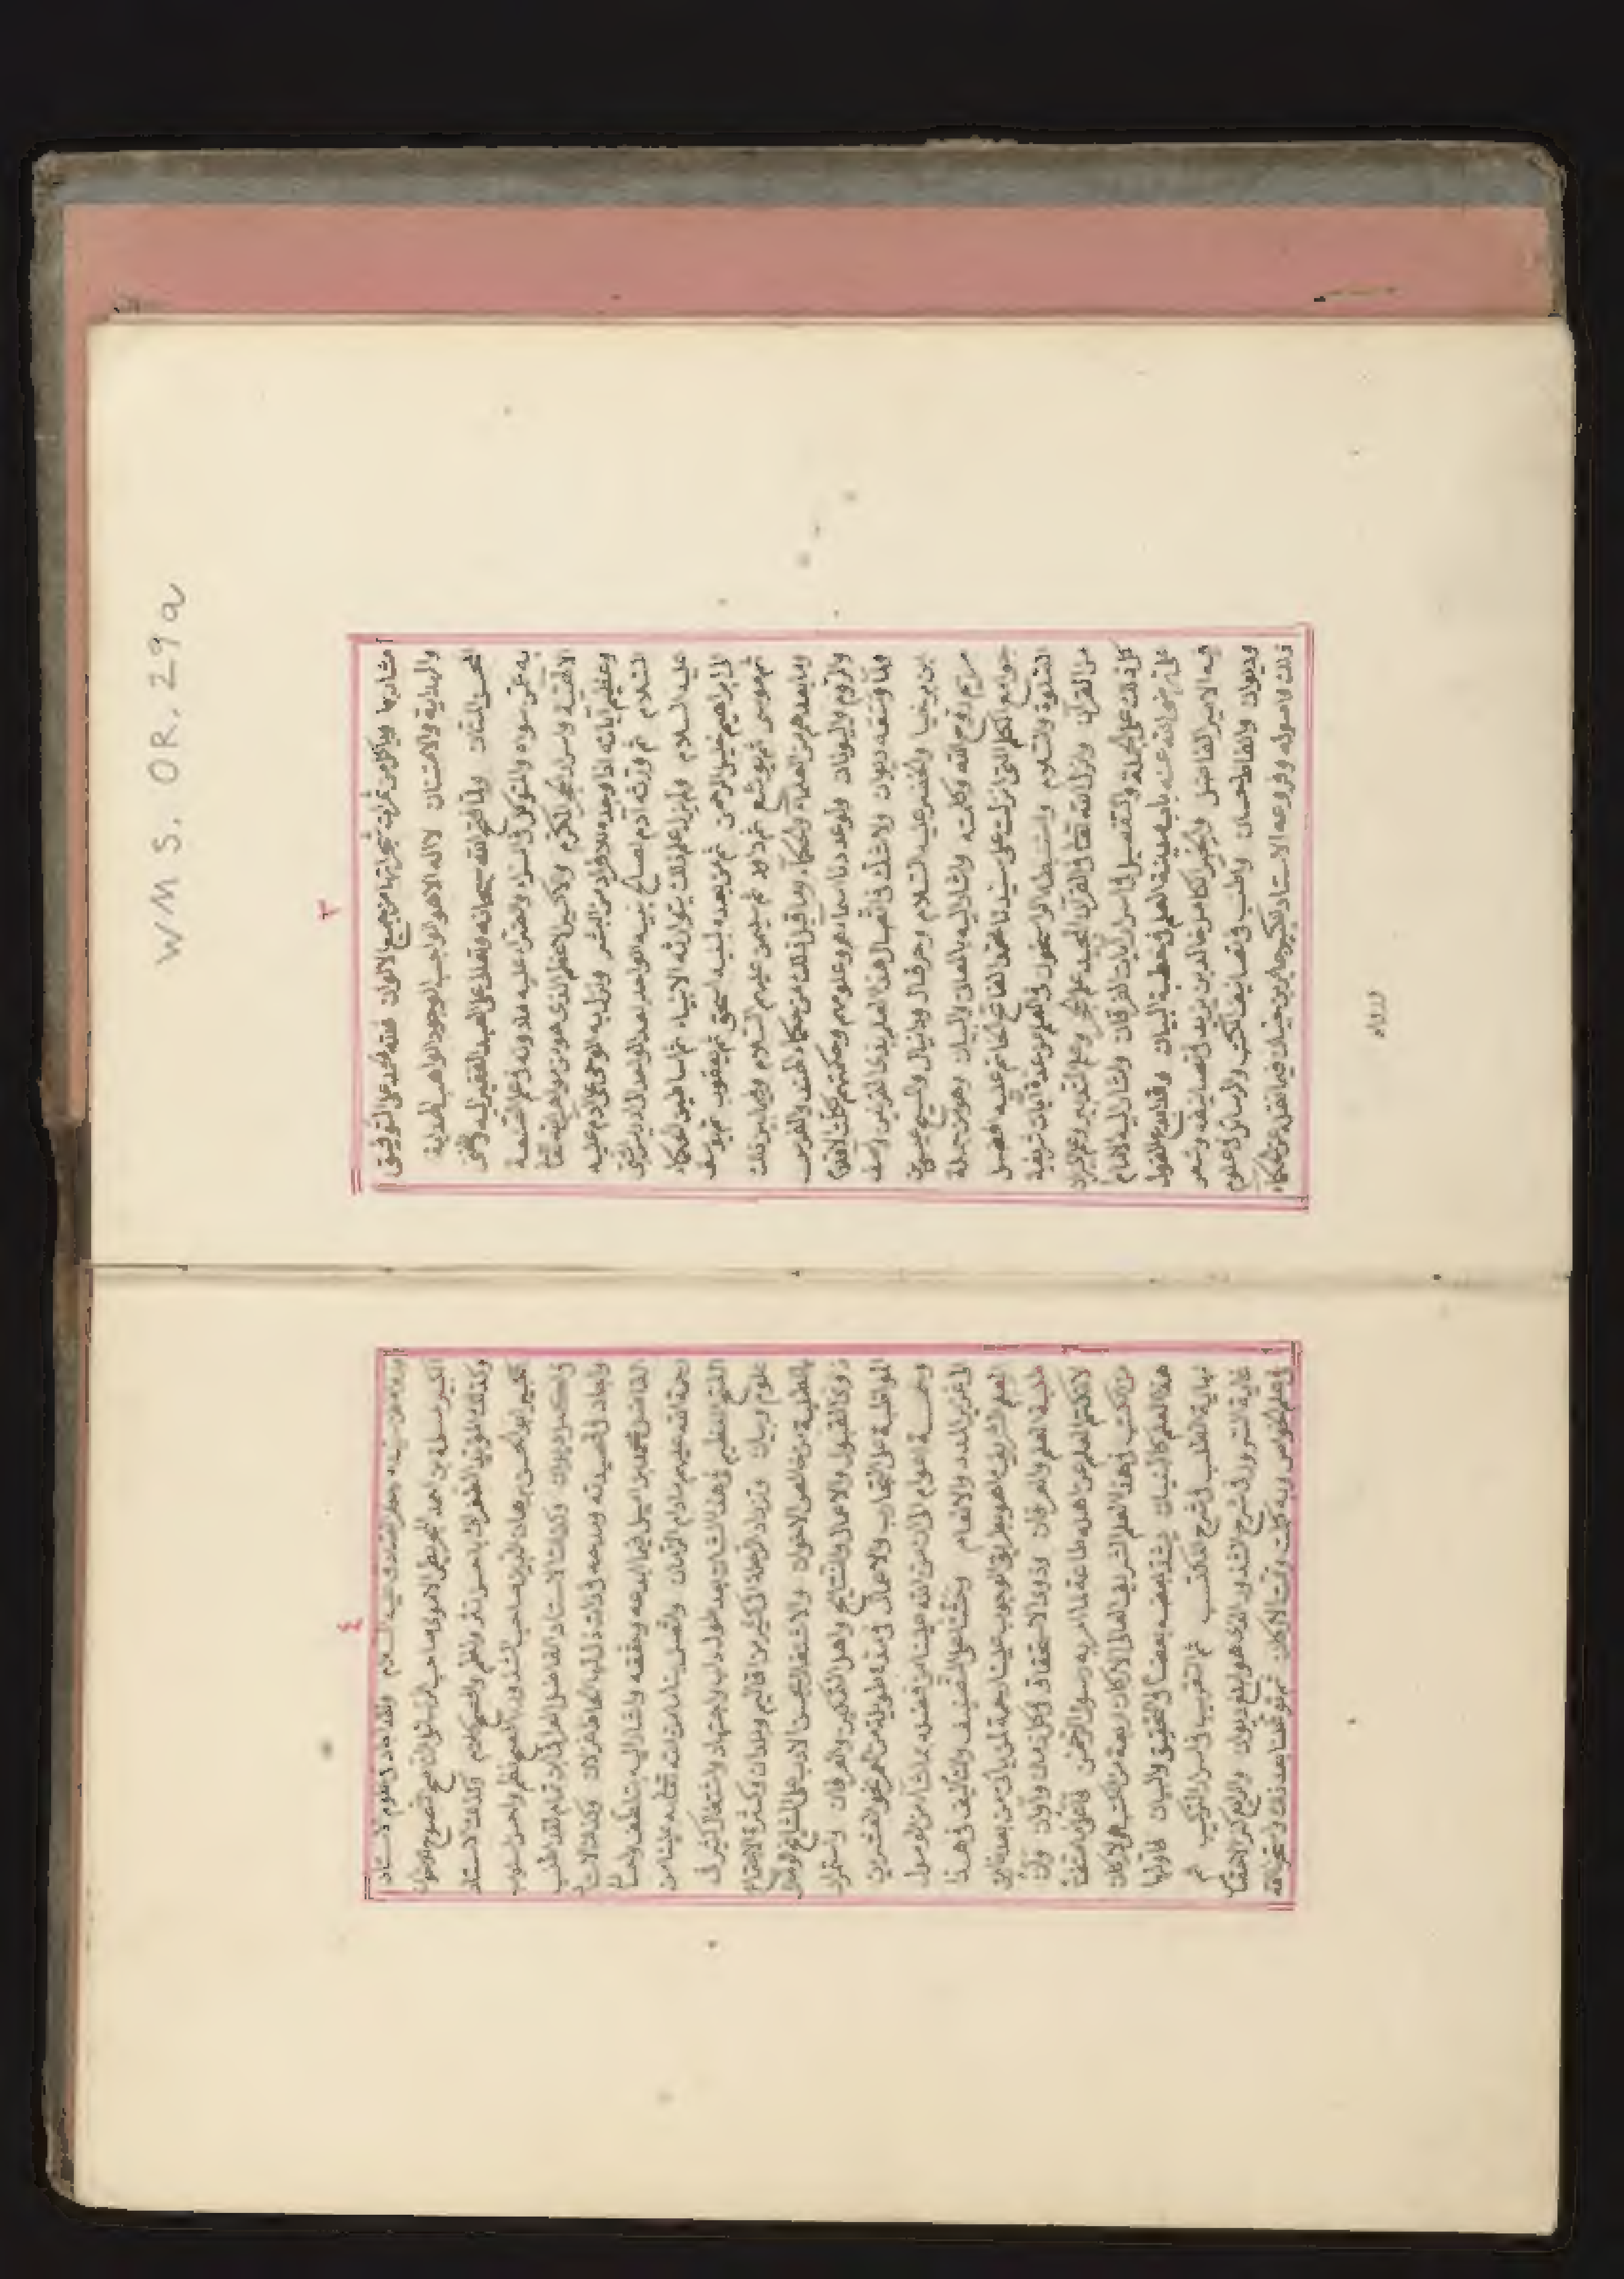 WMS. OR. 29a
٣
مشاربها وياكل من ثمرات شجراتها من جميع الالوان فلله الحمد على التوفيق
والهداية والامتنان لا اله الا هو الواجب الوجود الواهب الهداية
المحسن المنان ولما فتح الله سبحانه وتعالى على العبد الفقير اليه والغنى
به عن سواه والمتوكل في السراء والضراء عليه ملاونه في علم الصنعة
الالهية واسرار الحجر المكرم والاكسير الاعظم الذي هو من مواهب الله تعالى
وعظيم آياته اذا وجده للافراد من البشر ونزل به الوحي على آدم عليه
السلام ثم ورثه آدم لصالح بنيه الواحد بعد الواحد الى ادريس النبي
عليه السلام ولم يزل علم ذلك يتوارثه الانبياء ثم اساطين الحكماء
الى ابراهيم خليل الرحمن ثم من بعده لبنيه اسحق ثم يعقوب ثم يوسف
ثم موسى ثم يوشع ثم داود ثم سليمن عليهم السلام وفيما بين ذلك
وما بعدهم من العلماء والحكماء وما قبل ذلك من حكماء الهند والفرس
والروم واليونان ولو عددنا اسماءهم وعلومهم وحكمتهم لكلت الاقلام
ولما وسعه ديوان ولا شك في اتصال هذا العلم بذي القرنين وآصف
ابن برخيا والخضر عليه السلام وحزقيال ودانيال والمسيح عيسى بن
مريم روح الله وكلمته واشار اليه بالمعاني والبيان وهو من جملة
جوامع الكلم التي انزلت على سيدنا محمد الفاتح الخاتم عليه افضل
الصلوة والسلام واستنبطه الراسخون في العلم من عدة آيات شريفة
من القرآن ونزل الله تعالى في القرآن المجيد علم الحجر وعلم التدبير وعلم
كل ذلك على الجملة والتفصيل في اسرار آيات الفرقان واشار اليه الامام
علي رضي الله عنه باب مدينة العلم في خطبة البيان وقد اوسع القول
فيه الامير الفاضل والحبر الكامل خالد بن يزيد في تصانيفه وشعر
وديوان والفاظ حسان واطنب في تصانيف الكتب والرسائل لا علوم
ذلك لاصوله وفروعه الاستاد الكبير جابر بن حيان فيما نقل عن الحكماء
ورواه
٤
ورواه عن سيده جعفر الصادق عليه السلام ولقد اجاد في علوم الاستاد
الكبير مسلمة بن احمد المجريطي الاموي صاحب الرسائل وان صح لنصوح الاخوان
وكذلك المؤيد الطغرائي باحسن نثر ونظم واحسن كلام وكذلك الاستاد
الكبير ابو الحسن برهان الدين صاحب الشذور بافصح نظم واحسن اسلوب
والكسر وديوان وكذلك الاستاد الفاضل العراقي ابن تمام لقد اطنب
واجاد في قصيدته ومدحه في ذات ذلك الحاضر لان وكذلك الاستاد
الفاضل محمد بن اميل فيما ابدعه وحققه واشار اليه بتلطف واحسان
رحمة الله عليهم ما دام الزمان واتصل بنا ما من الله تعالى به علينا من
الفتح العظيم في هذا الشان بعد طول داب لاجتهاد واشتغال كثير في
علوم وبيان وترداد الرحلة الى كثير من اقاليم وبلدان وكثرة الاجتماع
بالطلبة من خالص الاخوان والاشتغال بحسن الادب على المشايخ اولي
ذوي القبول والاعمال والنتائج واهل التفكير والعرفان واستمرار
المواظبة على التجارب والاعمال في مدة طويلة من العمر نحو العشرين
وخمسة اعوام الى ان من الله علينا من فضله بما شاء من الوصول
الى عزيز المدد والانعام وحثنا على التصنيف والتأليف في هذا
العلم الشريف ما هو بطريق الوجوب علينا رحمة لمن يأتي من بعدنا من
طلبة العلم والعرفان وذوي الاستحقاق في كل زمان وآوان وان
لا نكتم العلم عن اهله طاعة لما امر به رسول الرحمن
من الكتب في هذا العلم الشريف العالي الاركان اربعة من الكتب هي اركان
هذا العلم كالبنيان يشد بعضه بعضا في التحقيق والبيان فاولها
نهاية الطلب في شرح المكتسب ثم التقريب في اسرار التركيب ثم
غاية السرور في شرح الشذور الذي هو ابدع ديوان والرابع كنز الاختصاص
في علم الخواص وبه كملت وتمت الاركان ثم توقفنا بعد ذلك واستخرنا الله